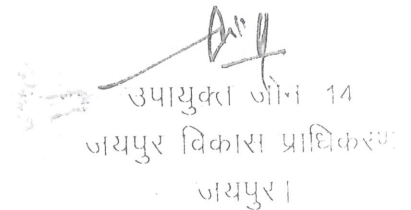 उपायुक्त जोन 14
जयपुर विकास प्राधिकरण
जयपुर।